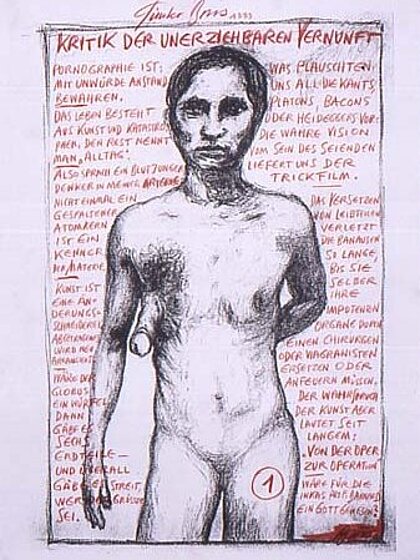 1993
KRITIK DER UNERZIEHBAREN VERNUNFT
PORNOGRAPHIE IST:
MIT UNWÜRDE ANSTAND
BEWAHREN.
DAS LEBEN BESTEHT
AUS KUNST UND KATASTRO
PHEN, DEN REST NENNT
MAN „ALLTAG".
ALSO SPRACH EIN BLUTJUNGER
DENKER IN MEINER ARTERIE
NICHT EINMAL EIN
GESPALTENER
ATOMKERN
IST EIN
KENNER
DER MATERIE
KUNST IST
EINE ÄN-
DERUNGS-
SCHNEIDEREI
WIRD NEU
WÄRE DER
GLOBUS
EIN WÜRFEL
DANN
GÄBE ES
SECHS
ERDTEILE —
UND ÜBERALL
GÄBE ES STREIT,
WER DER GRÖSSTE
SEI.
WAS PLAUSCHTEN
UNS ALL DIE KANTS,
PLATONS, BACONS
ODER HEIDEGGERS VOR:
DIE WAHRE VISION
VOM SEIN DES SEIENDEN
LIEFERT UNS DER
TRICKFILM.
DAS VERSETZEN
VON LEIBTEILEN
VERLETZT
DIE BANAUSEN
SO LANGE,
BIS SIE
SELBER
IHRE
IMPOTENTEN
ORGANE DURCH
EINEN CHIRURGEN
ODER VAGRANISTEN
ERSETZEN ODER
ANFEUERN MÜSSEN.
DER WAHRSPRUCH
DER KUNST ABER
LAUTET SEIT
LANGEM:
„VON DER OPER
ZUR OPERATION"
WÄRE FÜR DIE
INKAS
EIN GOTT GEWESEN?
1